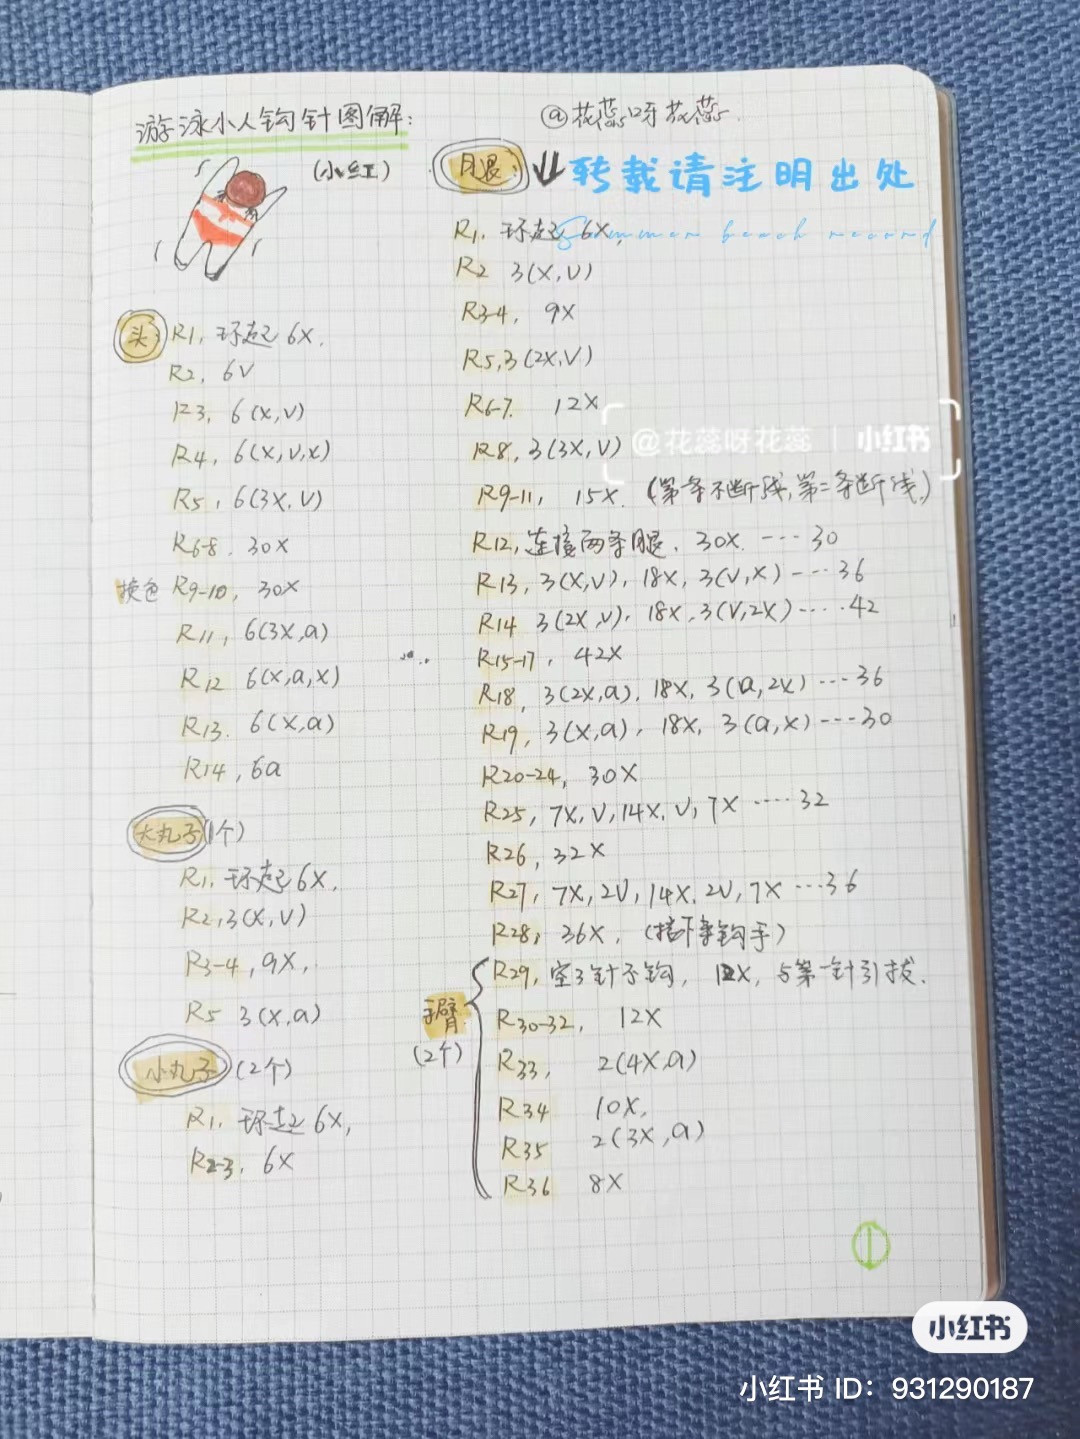 游泳小人钩针图解:
(小红)
头: R1, 环起6X.
R2, 6V
R3, 6(X,V)
R4, 6(X,V,X)
R5, 6(3X,V)
R6-8. 30X
换色 R9-10, 30X
R11, 6(3X,A)
R12 6(X,A,X)
R13. 6(X,A)
R14, 6A
大丸子(1个)
R1. 环起6X.
R2, 3(X,V)
R3-4, 9X,
R5 3(X,A)
小丸子 (2个)
R1. 环起6X,
R2-3, 6X
@花蕊呀花蕊.
腿:
转载请注明出处
Summer beach record
R1. 环起6X,
R2 3(X,V)
R3-4, 9X
R5, 3(2X,V)
R6-7. 12X
R8, 3(3X,V)
@花蕊呀花蕊 | 小红书
R9-11, 15X. (第一条不断线,第二条断线.)
R12, 连接两条腿. 30X. ---30
R13, 3(X,V), 18X, 3(V,X)---36
R14 3(2X,V), 18X, 3(V,2X)----42
R15-17, 42X
R18, 3(2X,A), 18X, 3(A,2X)---36
R19, 3(X,A), 18X, 3(A,X)---30
R20-24, 30X
R25, 7X,V,14X,V,7X ----32
R26, 32X
R27, 7X,2V,14X,2V,7X ---36
R28, 36X, (接下来钩手)
手臂
(2个)
R29, 空3针子钩, 12X, 与第一针引拔.
R30-32, 12X
R33, 2(4X,A)
R34 10X,
R35 2(3X,A)
R36 8X
1
小红书
小红书 ID: 931290187